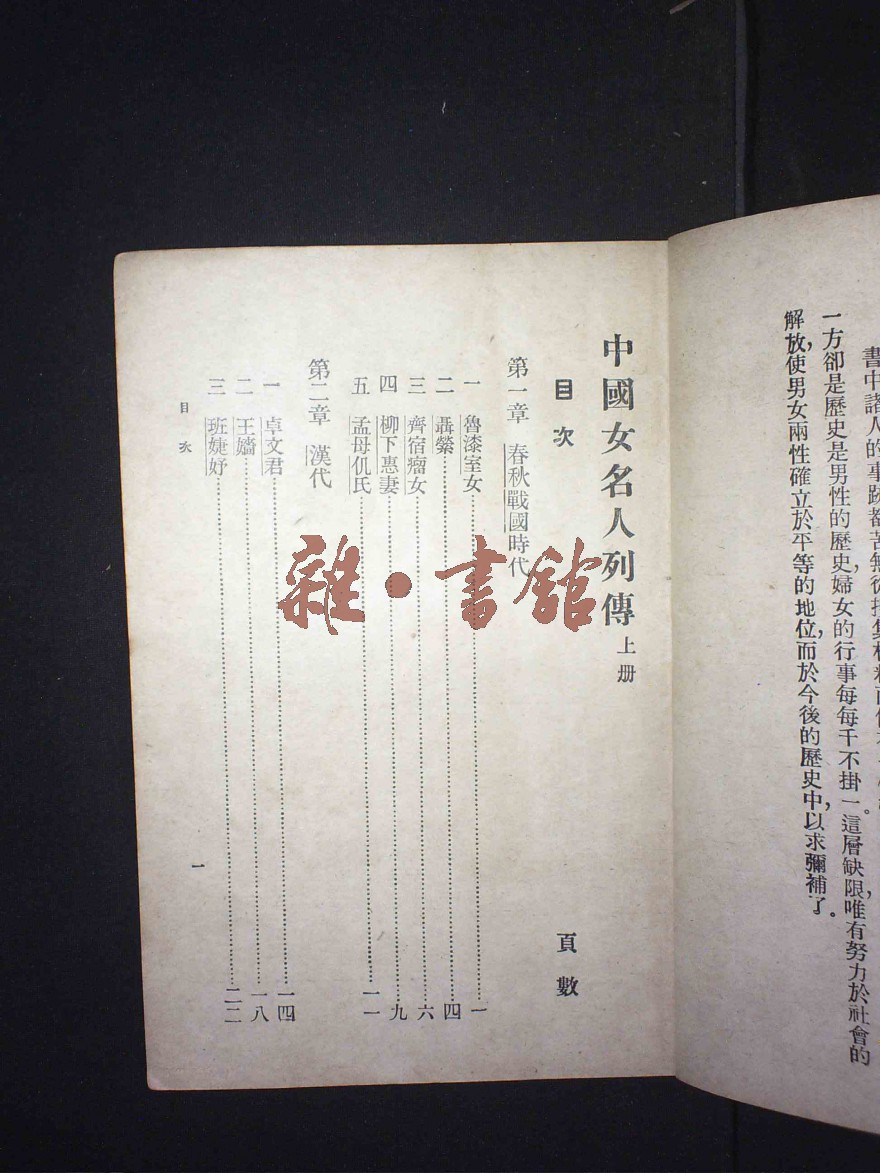 書中諸人的事跡都苦無從
一方卻是歷史是男性的歷史,婦女的行事每每千不掛一。這層缺限,唯有努力於社會的
解放,使男女兩性確立於平等的地位,而於今後的歷史中,以求彌補了。
中國女名人列傳 上册
目次 頁數
第一章 春秋戰國時代
一 魯漆室女 一
二 聶嫈 四
三 齊宿瘤女 六
四 柳下惠妻 九
五 孟母仉氏 一一
第二章 漢代
一 卓文君 一四
二 王嬙 一八
三 班婕妤 二二
目次 一
雜·書館